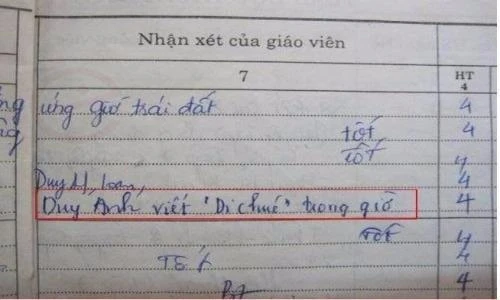 Nhận xét của giáo viên
7
HT
4
ứng giờ trái đất 4
tốt 4
tốt 4
Duy A1, loan, 4
Duy Anh viết "Di chúc" trong giờ 4
Tốt 4
TỐT 4
4